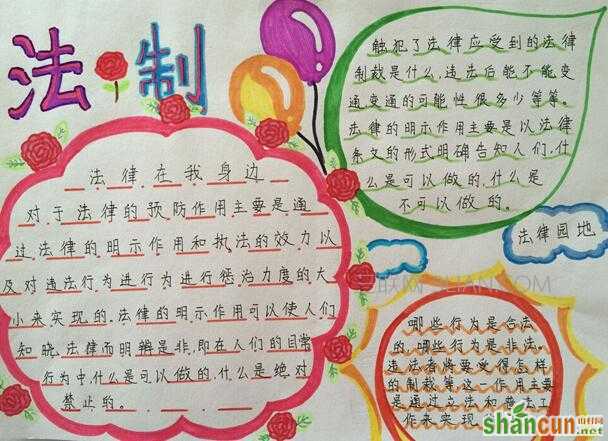 法制
法律在我身边
对于法律的预防作用主要是通
过法律的明示作用和执法的效力以
及对违法行为进行为进行惩治力度的大
小来实现的.法律的明示作用可以使人们
知晓.法律而明辨是非,即在人们的日常
行为中.什么是可以做的.什么是绝对
禁止的。
触犯了法律应受到的法律
制裁是什么.违法后能不能变
通变通的可能性很多少等等。
法律的明示作用主要是以法律
条文的形式明确告知人们.什
么是可以做的.什么是
不可以做的。
法律园地
哪些行为是合法
的.哪些行为是非法。
违法者将要受得怎样
的制裁等.这一作用主要
是通过立法和普法工
作来实现
shancun
.net